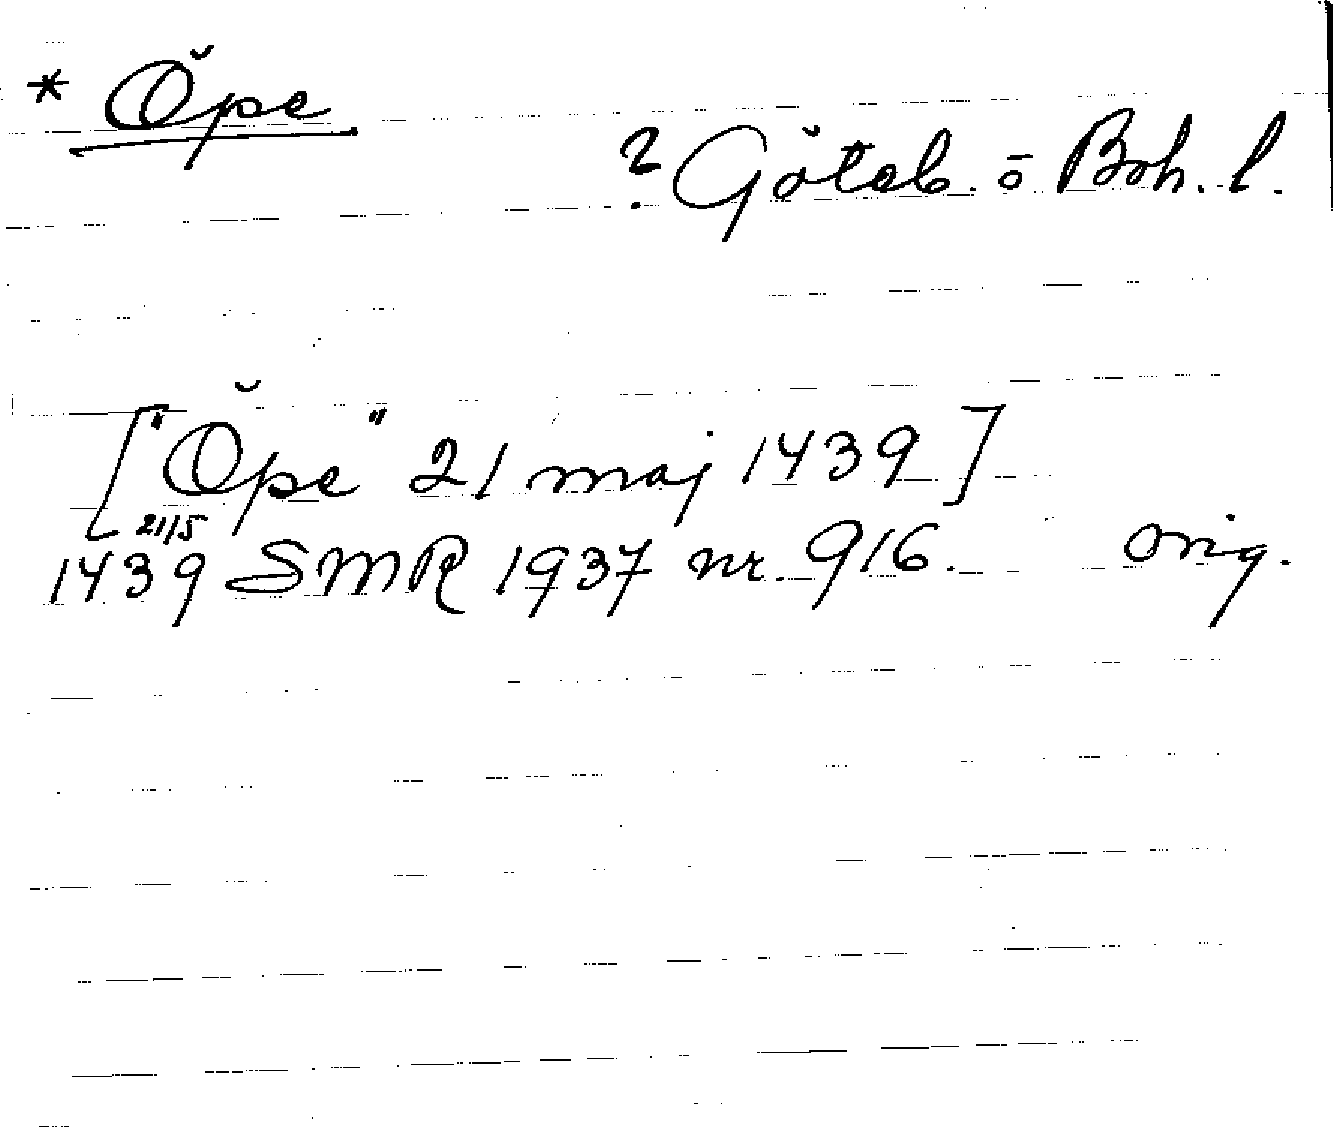 * Öpe
? Göteb. o Boh. l.
["Öpe" 21 maj 1439]
21/5
1439 SMR 1937 nr. 916. orig.